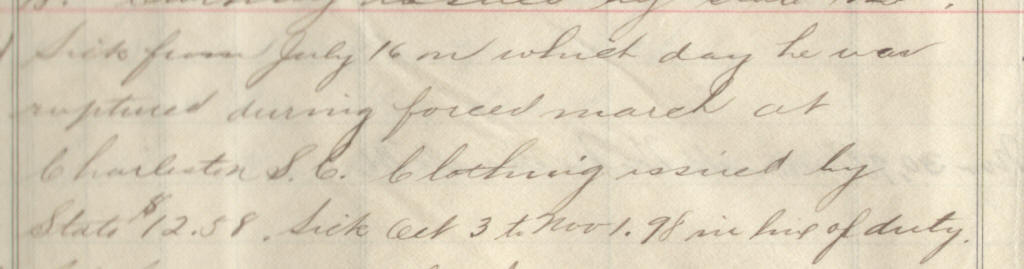 Clothing issued by State
Sick from July 16 on which day he was
ruptured during forced march at
Charleston S.C. Clothing issued by
State $12.58. Sick Oct 3 to Nov 1. 98 in line of duty.